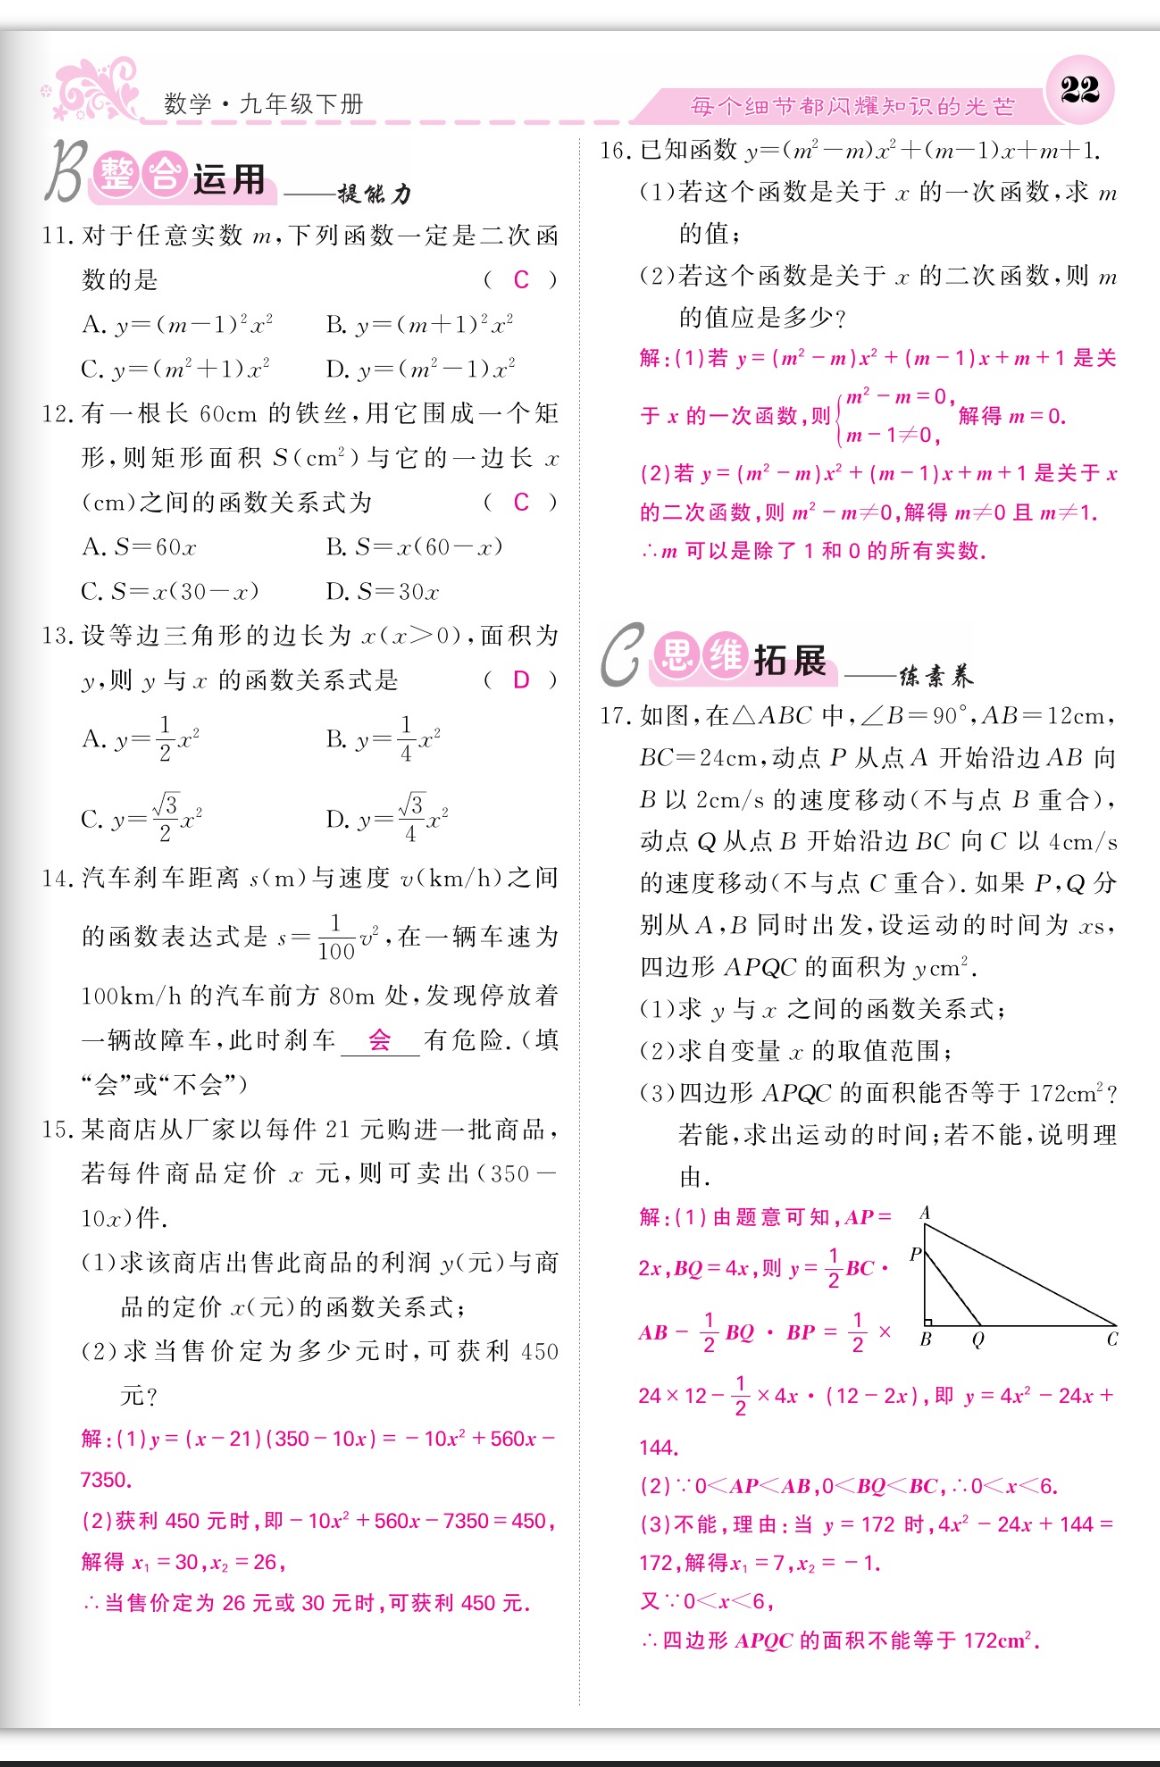 数学·九年级下册
每个细节都闪耀知识的光芒
22
B 整合运用 ——提能力
11. 对于任意实数 m,下列函数一定是二次函
数的是 ( C )
A. y=(m－1)²x² B. y=(m＋1)²x²
C. y=(m²＋1)x² D. y=(m²－1)x²
12. 有一根长 60cm 的铁丝,用它围成一个矩
形,则矩形面积 S(cm²)与它的一边长 x
(cm)之间的函数关系式为 ( C )
A. S=60x B. S=x(60－x)
C. S=x(30－x) D. S=30x
13. 设等边三角形的边长为 x(x>0),面积为
y,则 y 与 x 的函数关系式是 ( D )
A. y=1/2 x² B. y=1/4 x²
C. y=√3/2 x² D. y=√3/4 x²
14. 汽车刹车距离 s(m)与速度 v(km/h)之间
的函数表达式是 s=1/100 v²,在一辆车速为
100km/h 的汽车前方 80m 处,发现停放着
一辆故障车,此时刹车 会 有危险.(填
“会”或“不会”)
15. 某商店从厂家以每件 21 元购进一批商品,
若每件商品定价 x 元,则可卖出(350－
10x)件.
(1)求该商店出售此商品的利润 y(元)与商
品的定价 x(元)的函数关系式;
(2)求当售价定为多少元时,可获利 450
元?
解:(1)y=(x－21)(350－10x)=－10x²＋560x－
7350.
(2)获利 450 元时,即－10x²＋560x－7350=450,
解得 x₁=30,x₂=26,
∴当售价定为 26 元或 30 元时,可获利 450 元.
16. 已知函数 y=(m²－m)x²＋(m－1)x＋m＋1.
(1)若这个函数是关于 x 的一次函数,求 m
的值;
(2)若这个函数是关于 x 的二次函数,则 m
的值应是多少?
解:(1)若 y=(m²－m)x²＋(m－1)x＋m＋1 是关
于 x 的一次函数,则{m²－m=0, m－1≠0, 解得 m=0.
(2)若 y=(m²－m)x²＋(m－1)x＋m＋1 是关于 x
的二次函数,则 m²－m≠0,解得 m≠0 且 m≠1.
∴m 可以是除了 1 和 0 的所有实数.
C 思维拓展 ——练素养
17. 如图,在△ABC 中,∠B=90°,AB=12cm,
BC=24cm,动点 P 从点 A 开始沿边 AB 向
B 以 2cm/s 的速度移动(不与点 B 重合),
动点 Q 从点 B 开始沿边 BC 向 C 以 4cm/s
的速度移动(不与点 C 重合).如果 P,Q 分
别从 A,B 同时出发,设运动的时间为 xs,
四边形 APQC 的面积为 ycm².
(1)求 y 与 x 之间的函数关系式;
(2)求自变量 x 的取值范围;
(3)四边形 APQC 的面积能否等于 172cm²?
若能,求出运动的时间;若不能,说明理
由.
解:(1)由题意可知,AP=
2x,BQ=4x,则 y=1/2 BC·
AB－1/2 BQ·BP=1/2×
24×12－1/2×4x·(12－2x),即 y=4x²－24x＋
144.
A
P
B Q C
(2)∵0<AP<AB,0<BQ<BC,∴0<x<6.
(3)不能,理由:当 y=172 时,4x²－24x＋144=
172,解得x₁=7,x₂=－1.
又∵0<x<6,
∴四边形 APQC 的面积不能等于 172cm².